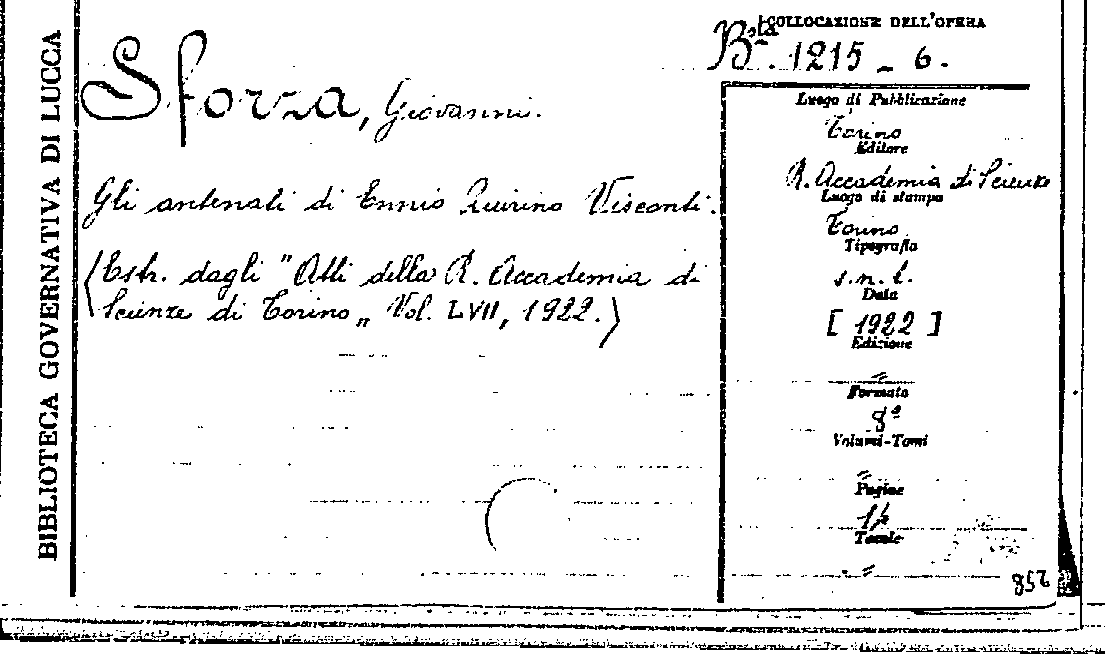 BIBLIOTECA GOVERNATIVA DI LUCCA
Sforza, Giovanni.
Gli antenati di Ennio Quirino Visconti.
(Estr. dagli "Atti della R. Accademia di
Scienze di Torino„ Vol. LVII, 1922.)
COLLOCAZIONE DELL'OPERA
Bsta. 1215 - 6.
Luogo di Pubblicazione
Torino
Editore
R. Accademia di Scienze
Luogo di stampa
Torino
Tipografia
s.n.t.
Data
[ 1922 ]
Edizione
=
Formato
8º
Volumi-Tomi
=
Pagine
Tavole
=
258